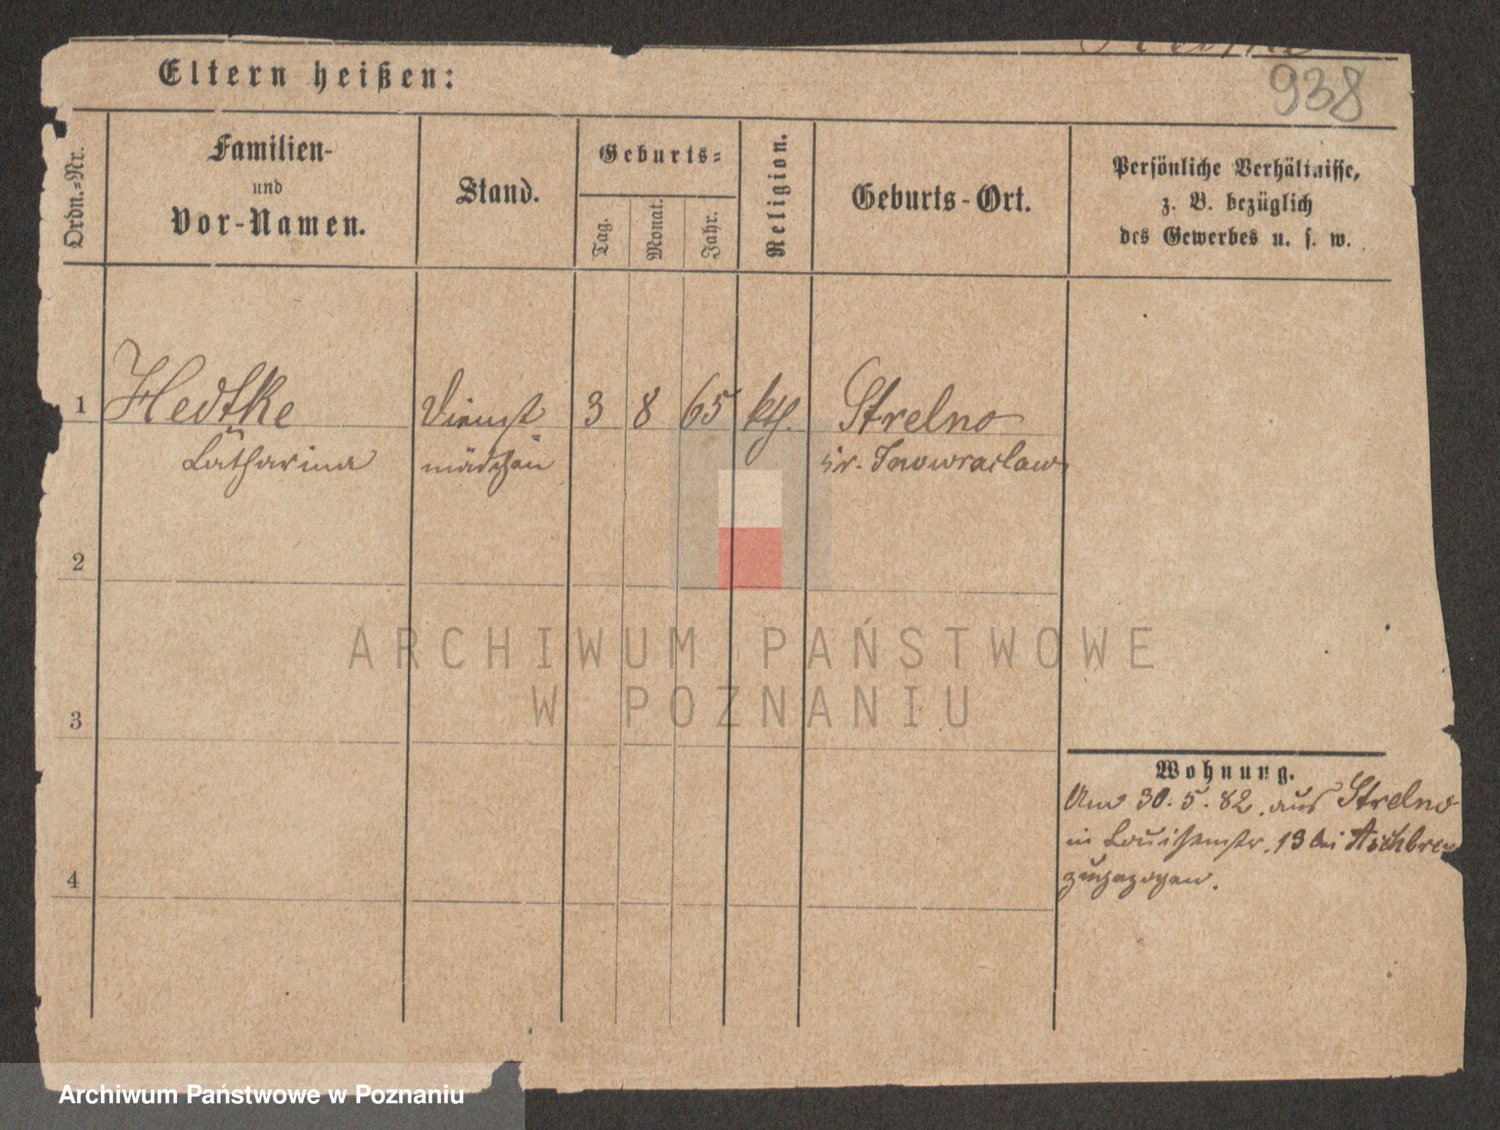 938
Eltern heißen:
Ordn.-Nr.
Familien-
und
Vor-Namen.
Stand.
Geburts-
Tag.
Monat.
Jahr.
Religion.
Geburts-Ort.
Persönliche Verhältnisse,
z. B. bezüglich
des Gewerbes u. s. w.
1 Hedtke Dienst 3 8 65 kth. Strelno
Catharina mädchen Kr. Inowraclaw
2
ARCHIWUM PAŃSTWOWE
W POZNANIU
3
Wohnung.
Am 30.5.82. aus Strelno
in Louisenstr. 19 bei
4
zugezogen.
Archiwum Państwowe w Poznaniu